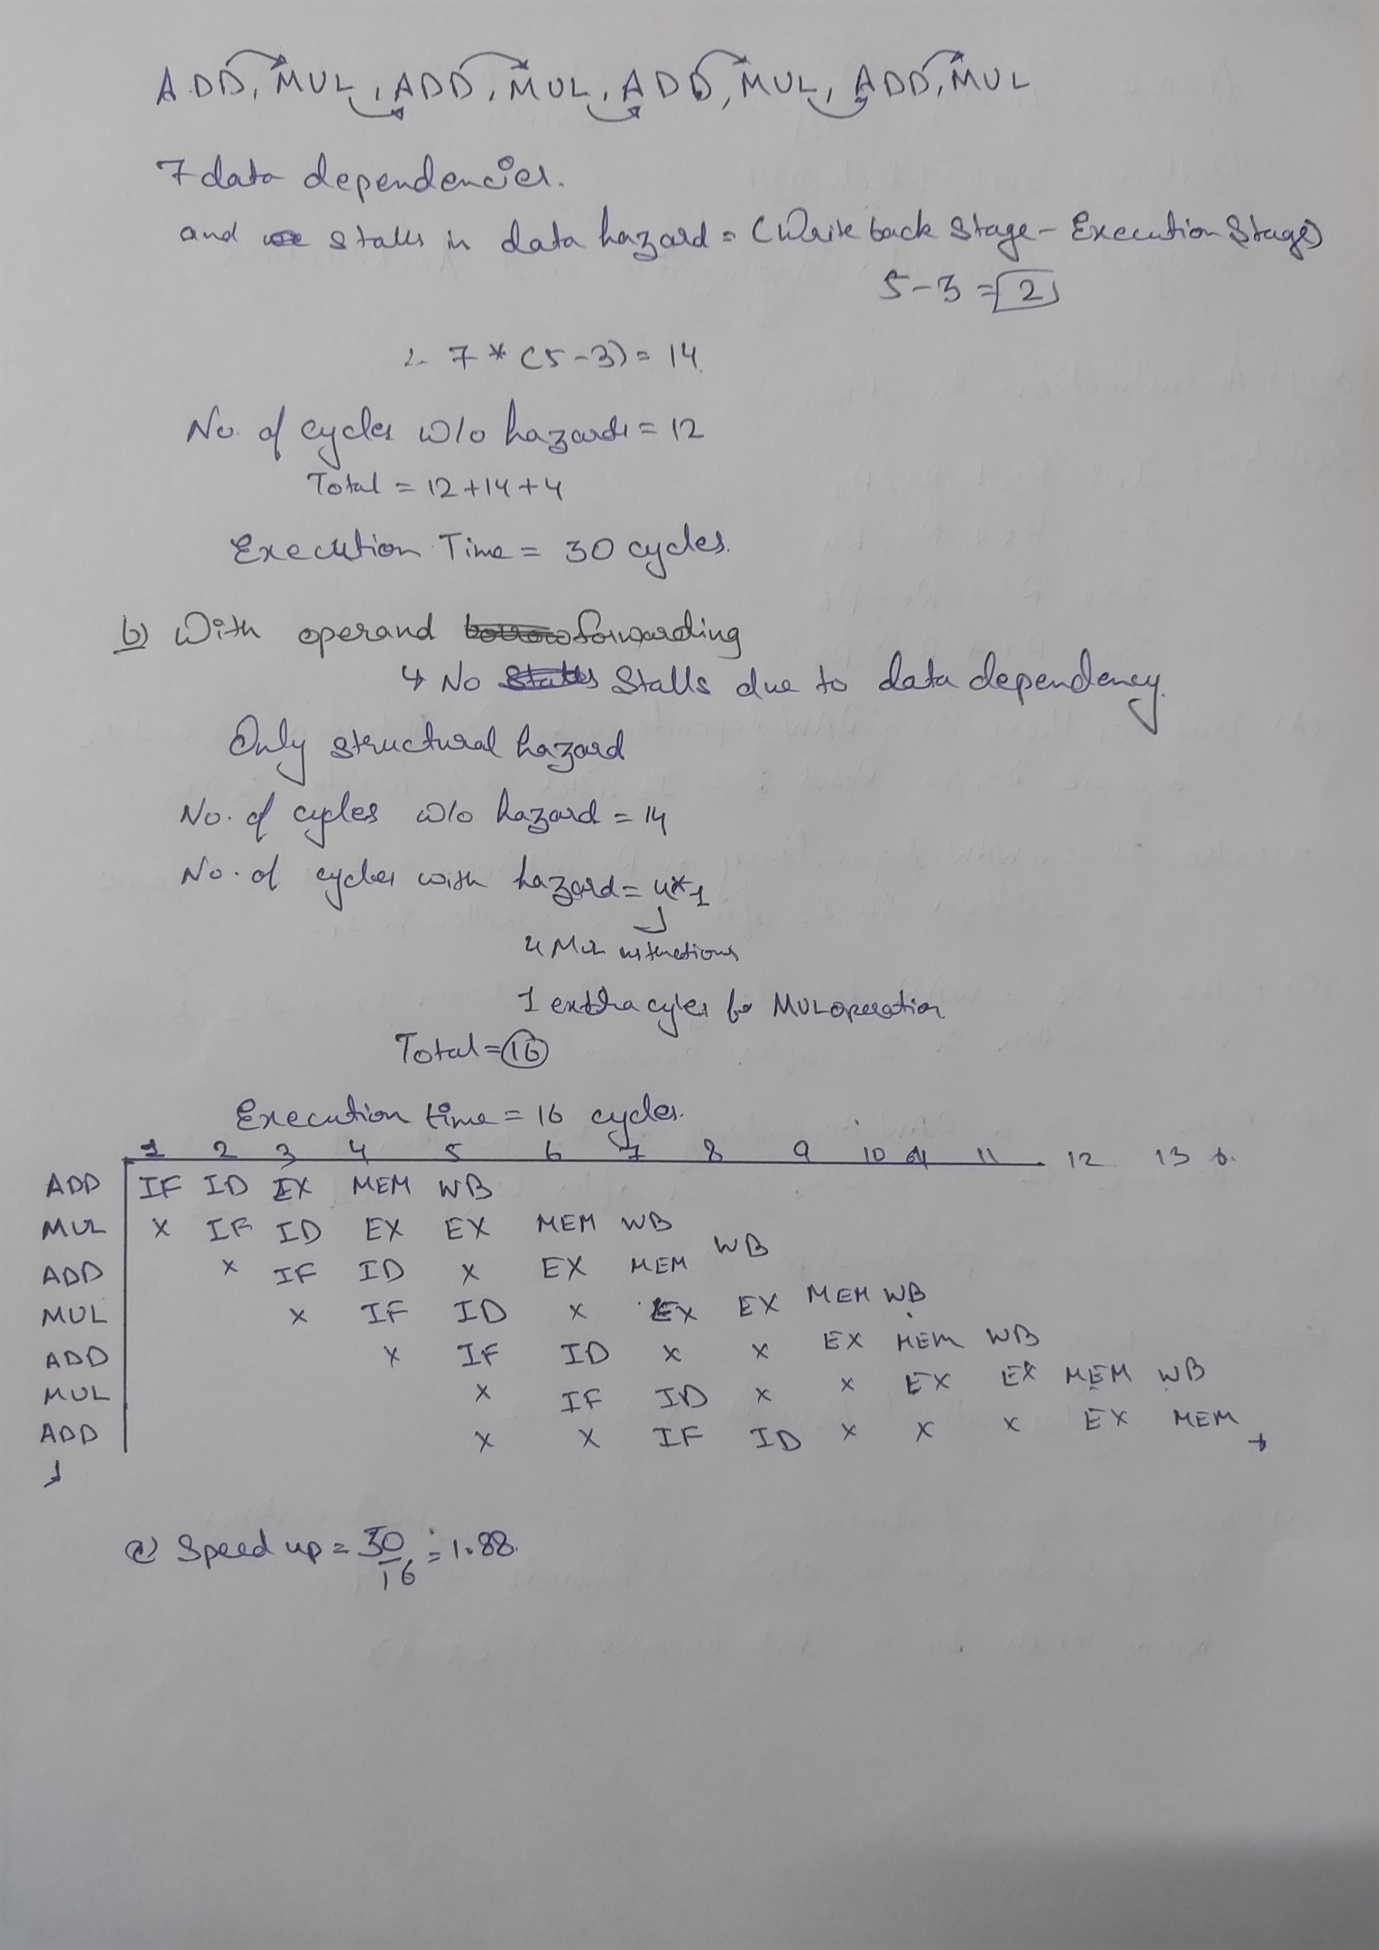 ADD, MUL, ADD, MUL, ADD, MUL, ADD, MUL
7 data dependencies.
and stalls in data hazard = (Write back Stage - Execution Stage)
5-3 = 2
∴ 7 * (5-3) = 14.
No. of cycles w/o hazards = 12
Total = 12+14+4
Execution Time = 30 cycles.
b) With operand forwarding
↳ No Stalls due to data dependency.
Only structural hazard
No. of cycles w/o hazard = 14
No. of cycles with hazard = 4*1
4 MUL instructions
1 extra cycles for MUL operation
Total = 16
Execution time = 16 cycles.
1 2 3 4 5 6 7 8 9 10 11 12 13
ADD IF ID EX MEM WB
MUL X IF ID EX EX MEM WB
ADD X IF ID X EX MEM WB
MUL X IF ID X EX EX MEM WB
ADD X IF ID X X EX MEM WB
MUL X IF ID X X EX EX MEM WB
ADD X X IF ID X X X EX MEM →
↓
c) Speed up = 30/16 = 1.88.